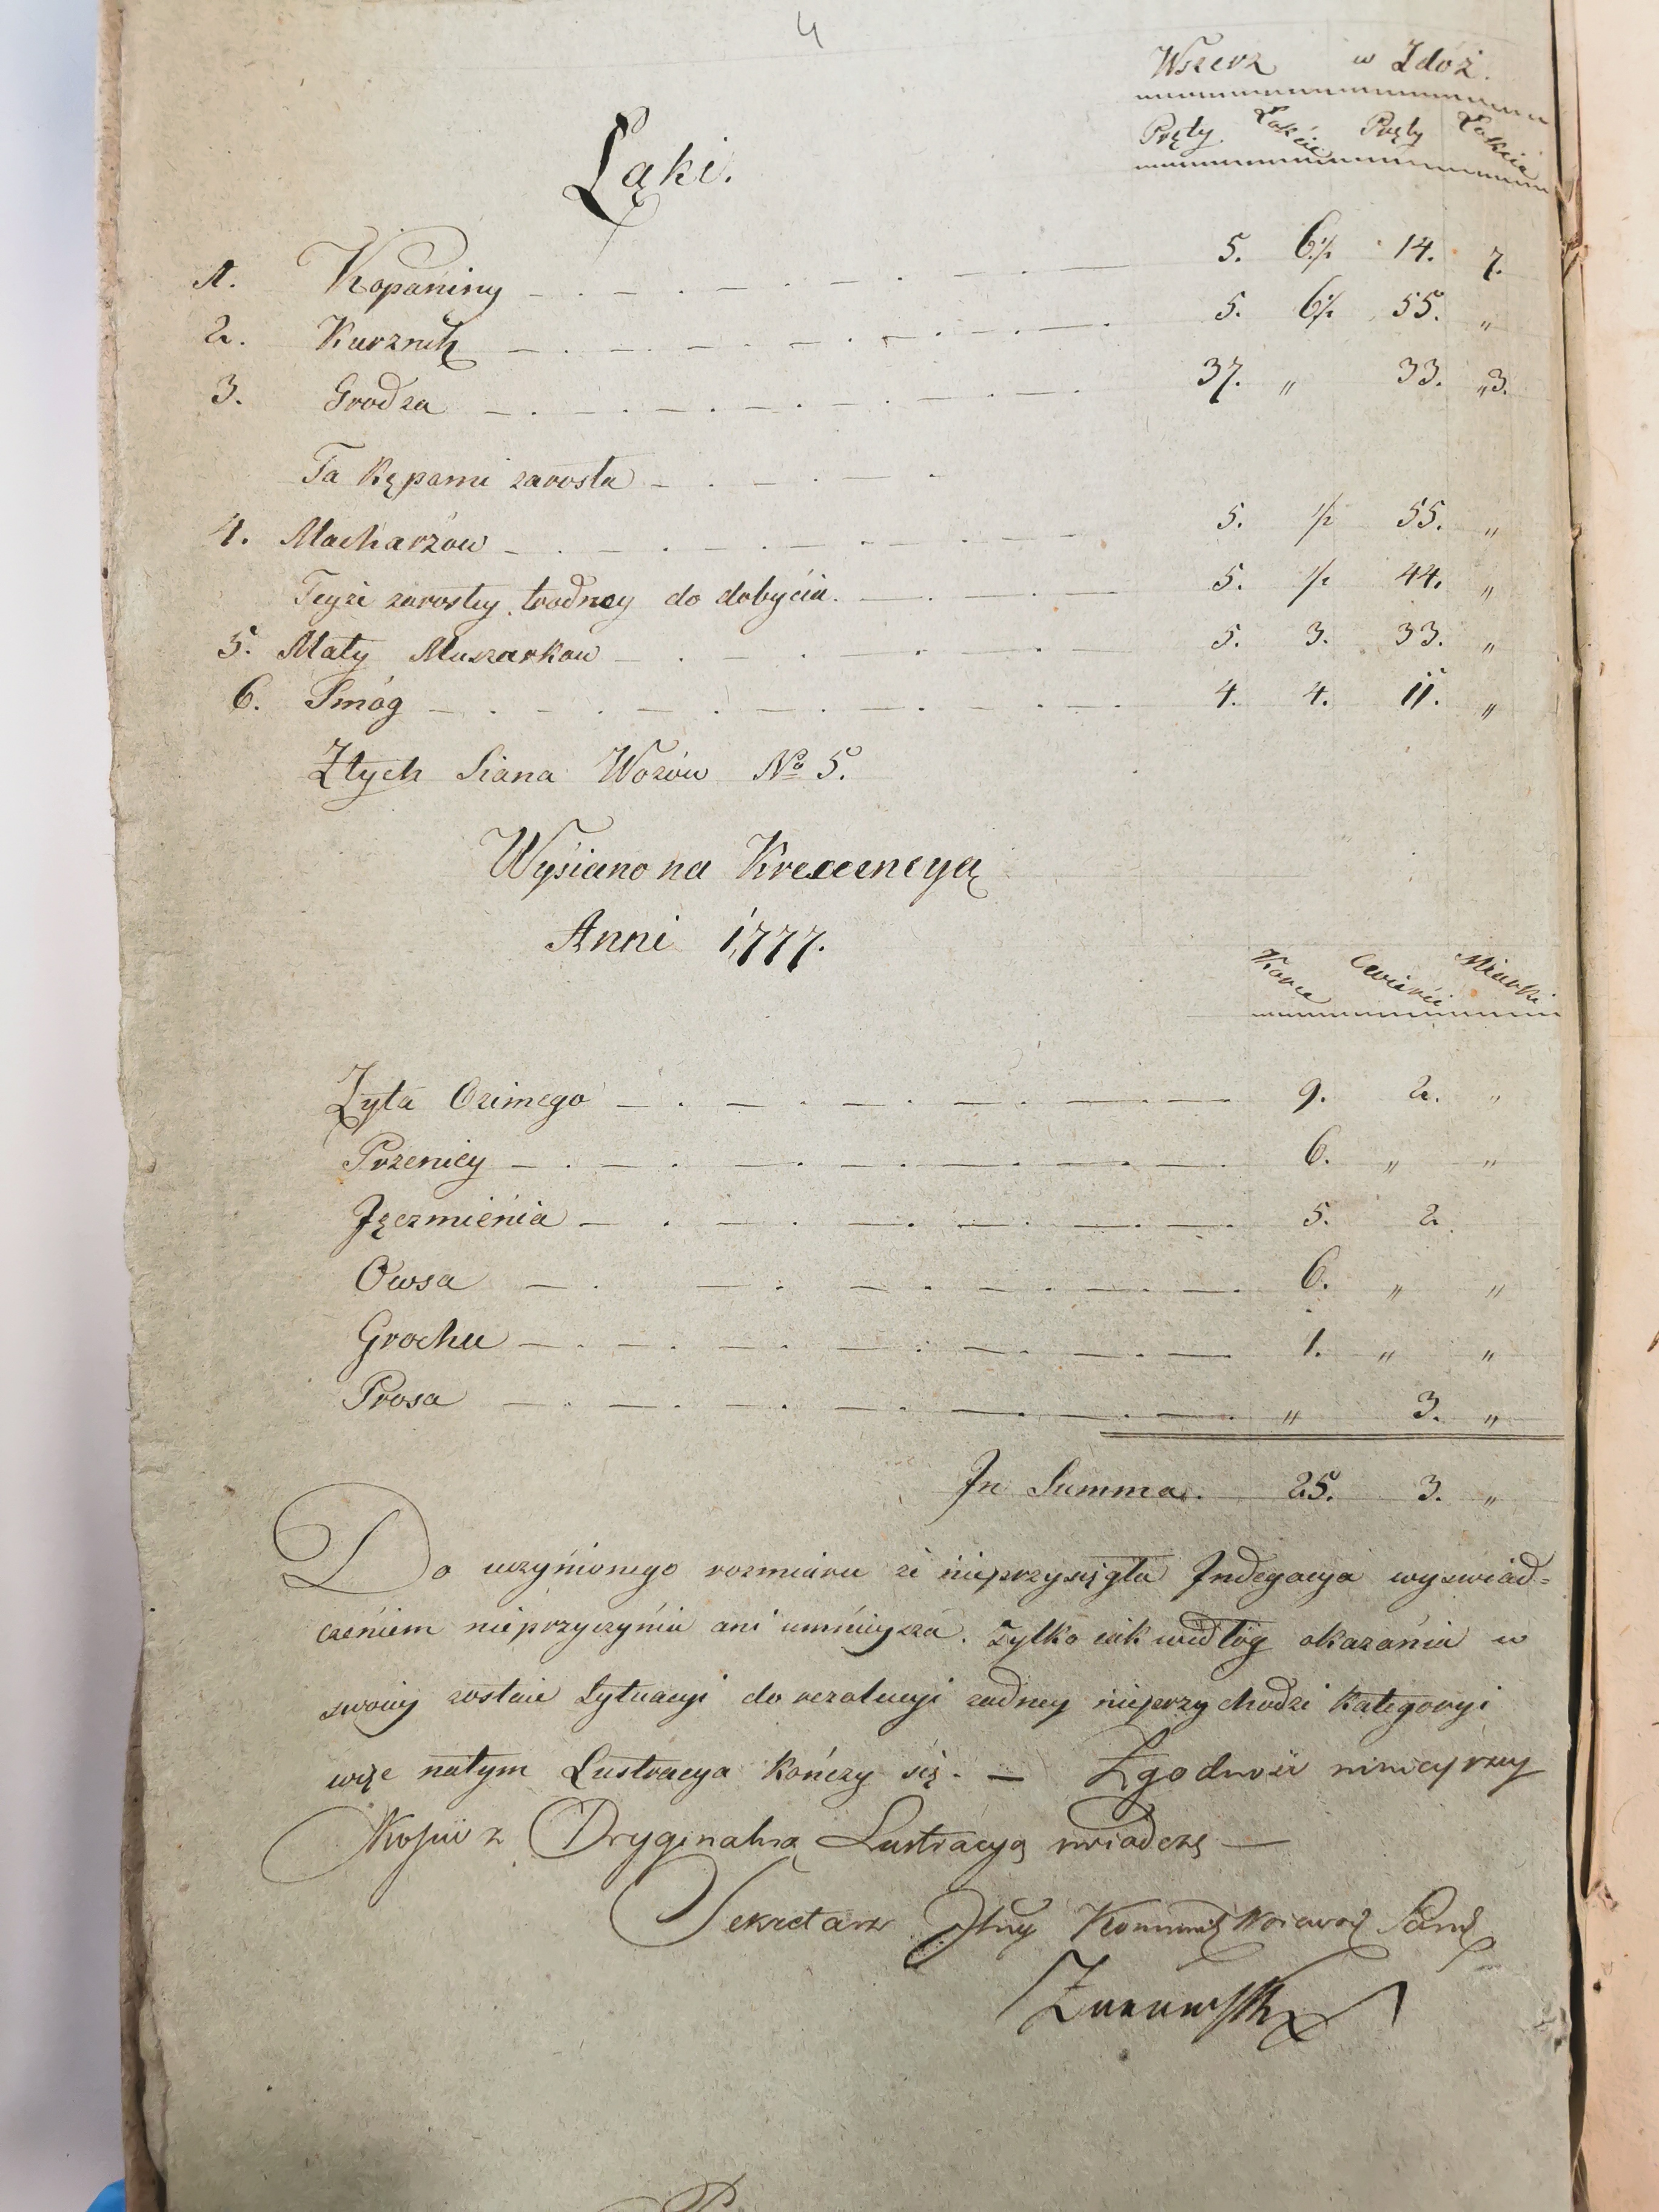 4
Wszerz w Zdóż.
Pręty Łokcie Pręty Łokcie
Łąki.
1. Kopaniny 5. 6½ 14. 7.
2. Kurznich 5. 6½ 55. „
3. Grodza 37. „ 33. „3.
Ta Kępami zarosła
4. Macharzow 5. ½ 55. „
Teyże zarosłey trodney do dobycia. 5. ½ 44. „
5. Mały Muszarkow 5. 3. 33. „
6. Smóg 4. 4. 11. „
Ztych Siana Wozów No 5.
Wysiano na Krescencyą
Anni 1777.
Korce Cwierci Miarki
Żyta Ozimego 9. 2. „
Przenicy 6. „ „
Jęczmienia 5. 2.
Owsa 6. „ „
Grochu 1. „ „
Prosa „ 3. „
In Summa. 25. 3. „
Do uczynionego rozmiaru że nieprzysięgła Indegacya wyswiad=
czeniem nieprzyczynia ani umnieysza. Tylko iak wedłóg okazania w
swoiey zostaie Sytuacyi do rezolucyi zadney nieprzychodzi Kategoryi
więc natym Lustracya Kończy się. — Zgodność ninieyszey
Kopii z Oryginalną Lustracyą swiadczę —
Sekretarz Kommis Woiewod Sand